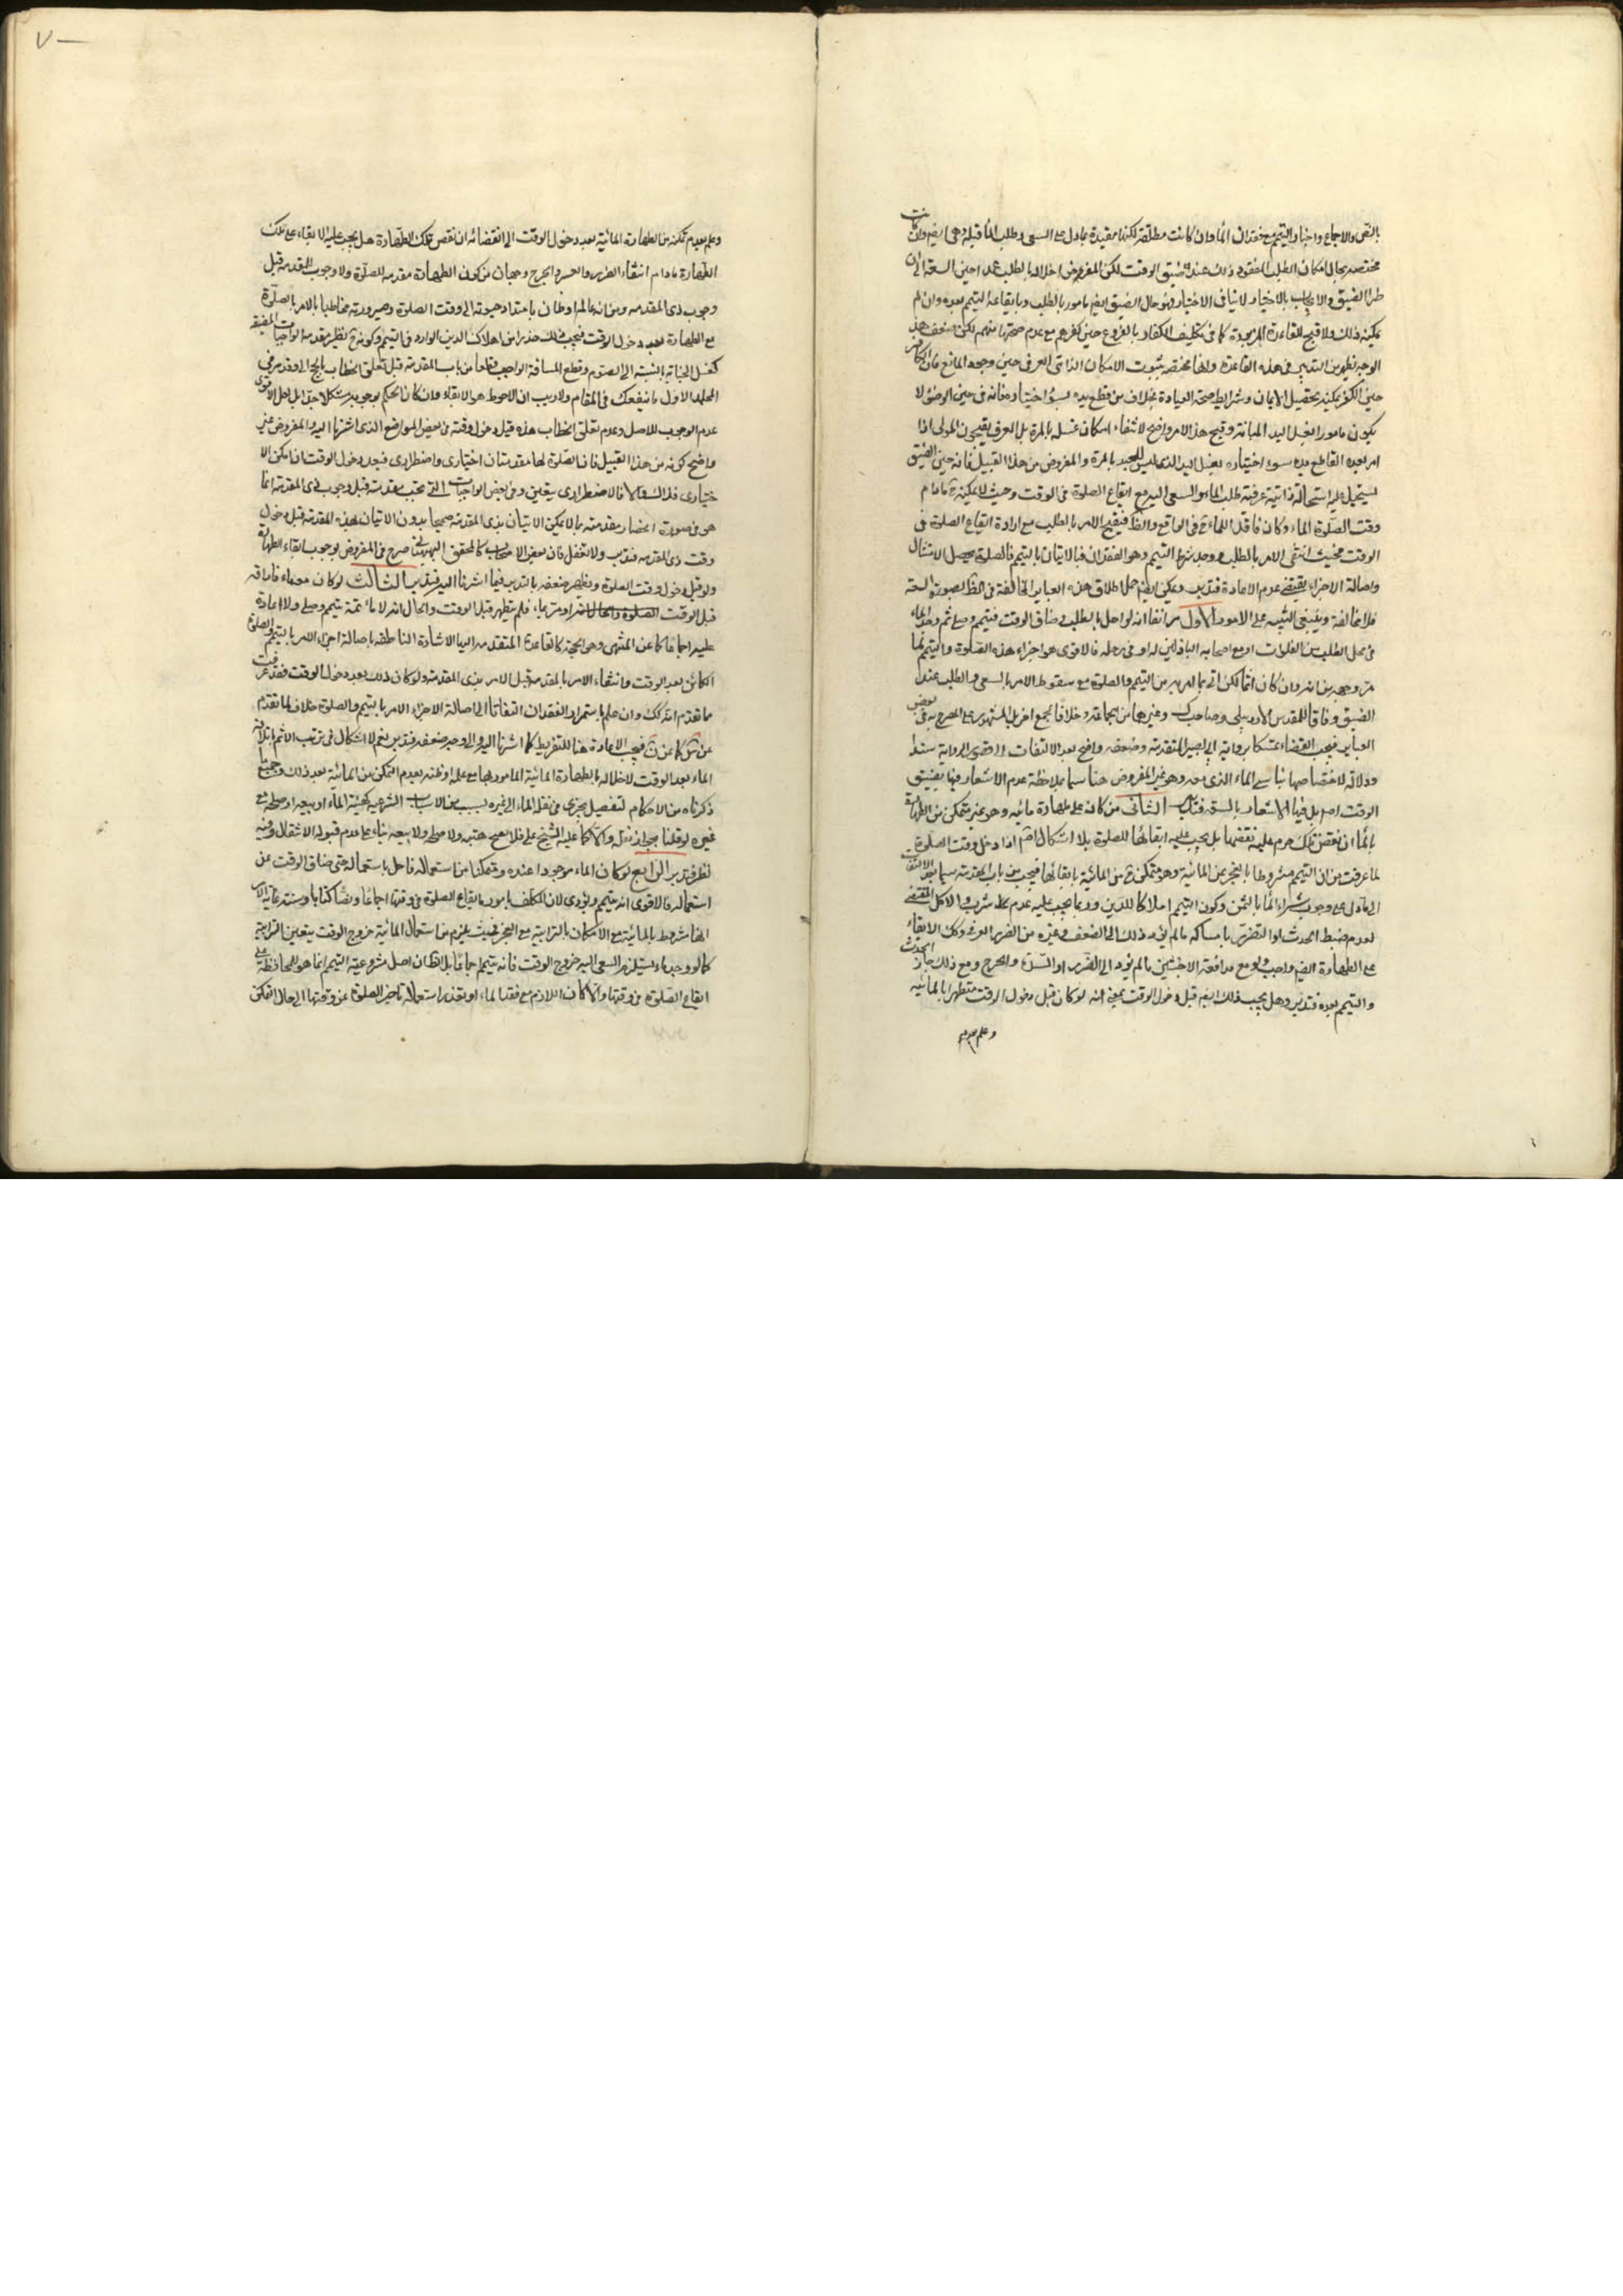 بالنص والاجماع واخبار التيمم مع فقدان الماء وان كانت مطلقة لكنها مقيدة بما دل على السعى وطلب الماء قبله وهى ايضا وان كانت
مختصة بحال امكان الطلب المفقود ذلك عند ضيق الوقت لكن المفروض اخلاله بالطلب عمدا حين السعة الى ان
طرا الضيق والايجاب بالاختيار لا ينافى الاختيار فهو حال الضيق ايضا مامور بالطلب وبايقاعه التيمم بعده وان لم
يمكنه ذلك ولا قبح للقاعدة المزبورة كما فى تكليف الكفار بالفروع حين كفرهم مع عدم صحتها منهم لكن وضعف هذا
الوجه يظهر من التدبر فى هذه القاعدة وانها مختصة بثبوت الامكان الذاتى العرفى حين وجود المانع فان الكافر
حين الكفر يمكنه تحصيل الايمان وشرايط صحة العبادة بخلاف من قطع يده بسوء اختياره فانه فى حين الوضوء لا
يكون مامورا بغسل اليد المبانة وقبح هذا الامر واضح لانتفاء امكان غسله بالمرة بل العرف يقبحون المولى اذا
امر بعده القاطع يده بسوء اختياره بغسل اليد الذى ليس للعبد بالمرة والمفروض من هذا القبيل فانه حين الضيق
يستحيل عليه استحالة ذاتية عرفية طلب الماء والسعى اليه مع ايقاع الصلوة فى الوقت وحيث لا يمكنه مادام
وقت الصلوة الماء وكان فاقد الماء فى الواقع والظاهر فيقبح الامر بالطلب مع ارادة ايقاع الصلوة فى
الوقت فحيث انتفى الامر بالطلب ووجد شرط التيمم وهو الفقدان فبالاتيان بالتيمم فالصلوة يحصل الامتثال
واصالة الاجزاء يقتضى عدم الاعادة فتدبر ويمكن ايضا حمل اطلاق هذه العباير المخالفة فى الظاهر لصورة السعة
فلا مخالفة وينبغى التنبيه على الامور الاول مر انفا انه لو اخل بالطلب وضاق الوقت فتيمم وصلى ثم وجد الماء
فى محل الطلب من الغلوات او مع اصحابه الباذلين له او فى رحله فالاقوى هو اجزاء هذه الصلوة والتيمم لما
مر وجهه من انه وان كان اثما لكن اتى بما امر به من التيمم والصلوة مع سقوط الامر بالسعى والطلب عند
الضيق وفاقا للمقدس الاردبيلى وصاحب ك وغيرهما من الجماعة وخلافا لجمع اخر بل المشهور على المصرح به فى بعض
العباير فيجب القضاء تمسكا برواية ابى بصير المتقدمة وضعفه واضح بعد الالتفات الى قصور الرواية سندا
ودلالة لاختصاصها بناسى الماء الذى معه وهو غير المفروض هنا سيما بملاحظة عدم الاشعار فيها بضيق
الوقت اصلا بل فيها الاشعار بالسعة فتدبر الثانى من كان على طهارة مائيه وهو غير متمكن من الطهارة
بالماء ان نقض تلك حرم عليه نقضها بل يجب عليه ابقائها للصلوة بلا اشكال اذا دخل وقت الصلوة
لما عرفت من ان التيمم مشروطا بالعجز عن المائية وهو متمكن من المائية بابقائها فيجب من باب المقدمة سيما بعد الالتفات
الى ما دل على وجوب شراء الماء بالثمن وكون التيمم اهلاكا للدين وربما يجب عليه عدم شرب والاكل المقتضى
لعدم ضبط الحدث او التضرر بامساكه ما لم يؤد ذلك الى الضعف وغيره من الضرر العرفى وكك الابقاء
على الطهارة ايضا واجب ولو مع مدافعة الاخبثين ما لم يؤد الى الضرر او الشدة والحرج ومع ذلك جاز الحدث
والتيمم بعده فتدبر وهل يجب ذلك ايضا قبل دخول الوقت بمعنى انه لو كان قبل دخول الوقت متطهرا بالمائية
وعلم بعدم
٧
وعلم بعدم تمكنه من الطهارة المائية بعد دخول الوقت الى انقضائه ان نقص تلك الطهارة هل يجب عليه الابقاء على تلك
الطهارة مادام انتفاء الضرر والعسر والحرج وجهان من كون الطهارة مقدمة للصلوة ولا وجوب للمقدمة قبل
وجوب ذى المقدمه ومن انه عالما او ظان بامتداد حيوته الى وقت الصلوة وصيرورته مخاطبا بالامر بالصلوة
مع الطهارة بعد دخول الوقت فيجب حذرا من اهلاك الدين الوارد فى التيمم وكونه نظير مقدمة الواجبات المضيقة
كغسل الجنابة بالنسبة الى الصوم وقطع المسافة الواجب قطعا من باب المقدمة قبل تعلق الخطاب بالحج الى وقد مر فى
المجلد الاول ما ينفعك فى المقام ولا ريب ان الاحوط هو الابقاء وان كان الحكم بوجوبه مشكلا جدا بل لعل الاقوى
عدم الوجوب للاصل وعدم تعلق الخطاب هذه قبل دخول وقته فى بعض المواضع الذى اشرنا اليه والمفروض غير
واضح كونه من هذا القبيل فان الصلوة لها مقدمتان اختيارى واضطرارى فبعد دخول الوقت ان امكن الا
ختيارى فذاك والا فالاضطرارى يتعين وفى بعض الواجبات التى تجب مقدمته قبل وجوب ذى المقدمة انما
هو فى صورة انحصار مقدمته بما لا يمكن الاتيان بذى المقدمة صحيحا بدون الاتيان بهذه المقدمة قبل دخول
وقت ذى المقدمه فتدبر ولا تغفل فان بعض الاصحاب كالمحقق البهبهانى صرح فى المفروض بوجوب ابقاء الطهارة
ولو قبل دخول وقت الصلوة ويظهر ضعفه بالتدبر فيما اشرنا اليه فتدبر الثالث لو كان معه ماء فاراقه
قبل الوقت او مر بماء فلم يتطهر قبل الوقت والحال انه لا ماء ثمة تيمم وصلى ولا اعادة
عليه اجماعا كما عن المنتهى وهو الحجة كالقاعدة المتقدمة اليها الاشارة الناطقه باصالة اجزاء الامر بالتيمم والصلوة
الكائن بعد الوقت وانتفاء الامر بالمقدمة قبل الامر بذى المقدمة ولو كان ذلك بعد دخول الوقت فقد عرفت
ما تقدم انه كك وان علم باستمرار الفقدان التفاتا الى اصالة الاجزاء الامر بالتيمم والصلوة خلاف لما تقدم
فيجب الاعادة هنا للتفريط كما اشرنا اليه والى وجه ضعفه فتدبر نعم لا اشكال فى ترتب الاثم باتلاف
الماء بعد الوقت لاخلاله بالطهارة المائية المامور بها مع علمه او ظنه بعدم التمكن من المائية بعد ذلك وجميع
ذكرناه من الاحكام لتفصيل يجرى فى نقل الماء الى غيره بسبب من الاسباب الشرعيه كهبة الماء او بيعه او صلحه مع
غيره لو قلنا بجواز نقل والا كما عليه الشيخ على فلا يصح هبته ولا صلحه ولا بيعه بناء على عدم قبوله الانتقال وفيه
نظر فتدبر الرابع لو كان الماء موجودا عنده ومتمكنا من استعماله فاخل باستعماله حتى ضاق الوقت عن
استعماله فالاقوى انه يتيمم ويؤدى لان المكلف مامور بايقاع الصلوة فى وقتها اجماعا ونصا كتابا وسنة غاية الامر
انها مشروط بالمائية مع الامكان بالترابية مع العجز فحيث يلزم من استعمال المائية خروج الوقت يتعين الترابية
كما لو وجد ماء يستلزم السعى اليه خروج الوقت فانه يتيمم اجماعا بل الظاهر ان اصل مشروعية التيمم انما هو للمحافظة على
ايقاع الصلوة فى وقتها والا كان اللازم مع فقد الماء او تعذر استعماله تاخير الصلوة عن وقتها الى حال التمكن